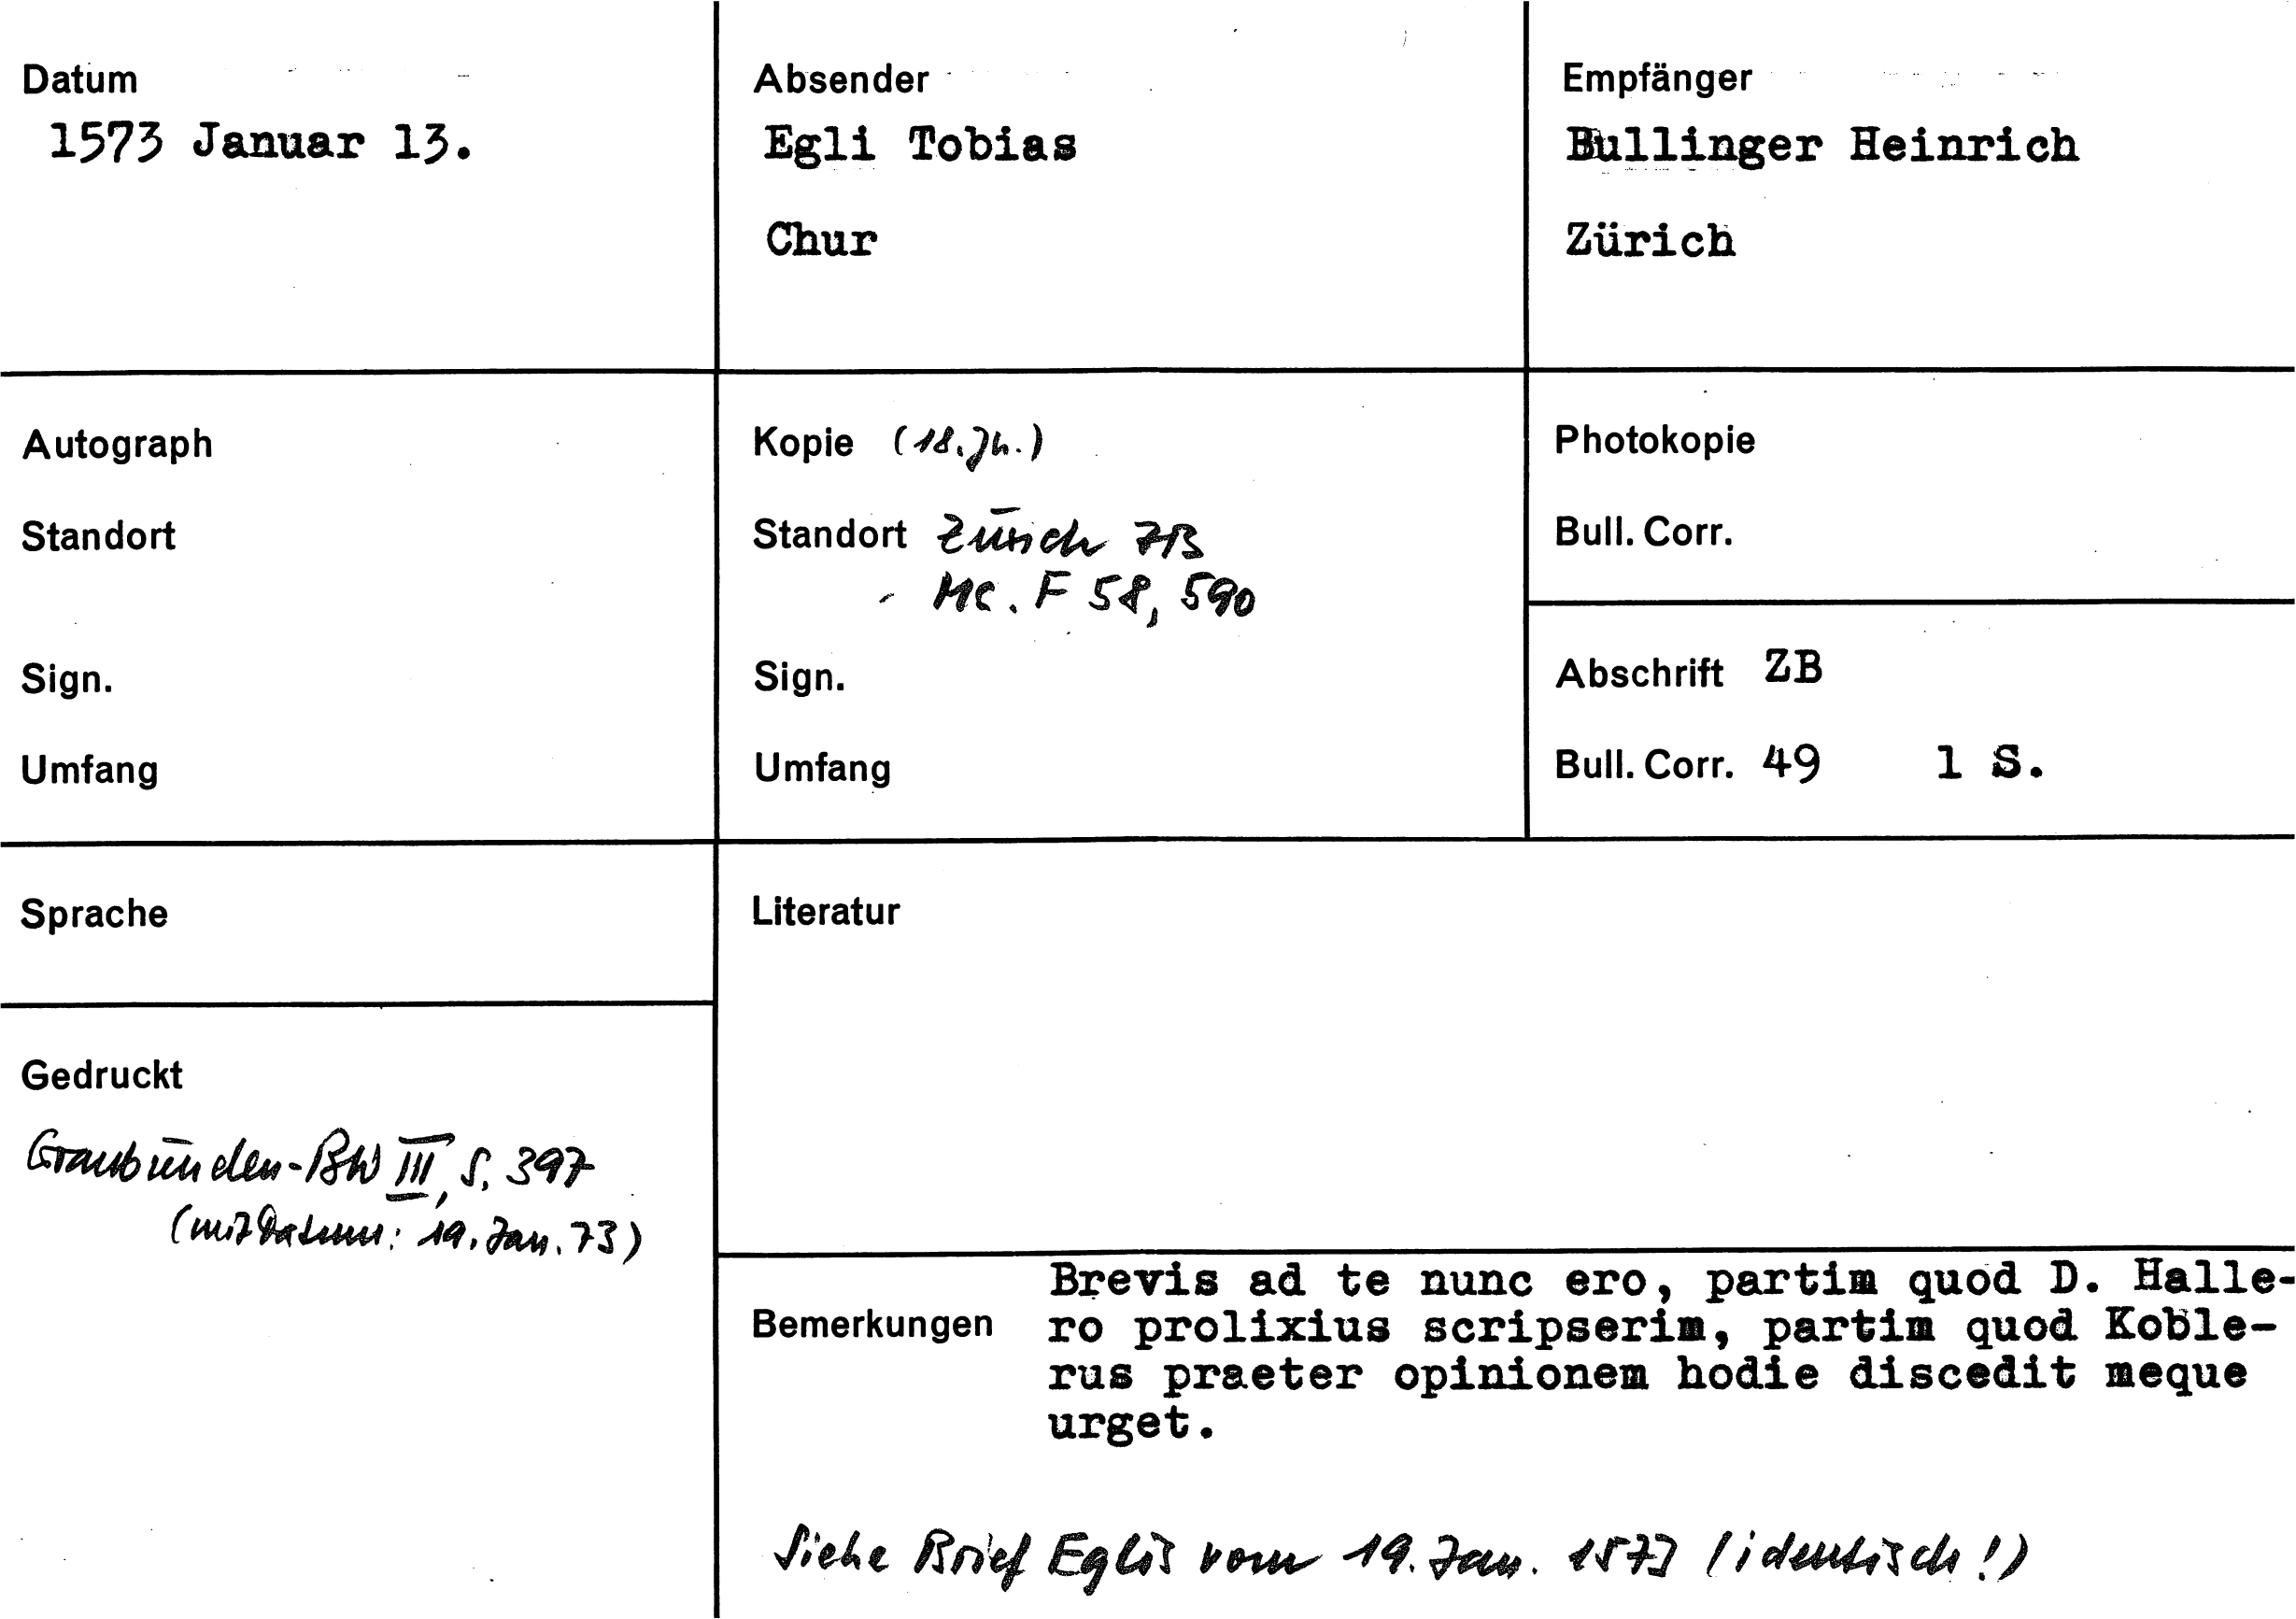 Datum
1573 Januar 13.
Absender
Egli Tobias
Chur
Empfänger
Bullinger Heinrich
Zürich
Autograph
Standort
Sign.
Umfang
Kopie (18. Jh.)
Standort Zürich ZB
Ms. F 58, 590
Sign.
Umfang
Photokopie
Bull. Corr.
Abschrift ZB
Bull. Corr. 49 1 S.
Sprache
Gedruckt
Graubünden-BW III, S. 397
(mit Datum: 19. Jan. 73)
Literatur
Bemerkungen
Brevis ad te nunc ero, partim quod D. Halle-
ro prolixius scripserim, partim quod Koble-
rus praeter opinionem hodie discedit meque
urget.
Siehe Brief Eglis vom 19. Jan. 1573 (identisch!)